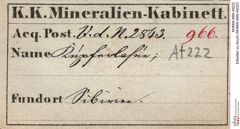 K.K. Mineralien-Kabinett.
Acq. Post. V.d.N. 2843. 966.
Name Kupferlasur; At222
Fundort Sibirien.